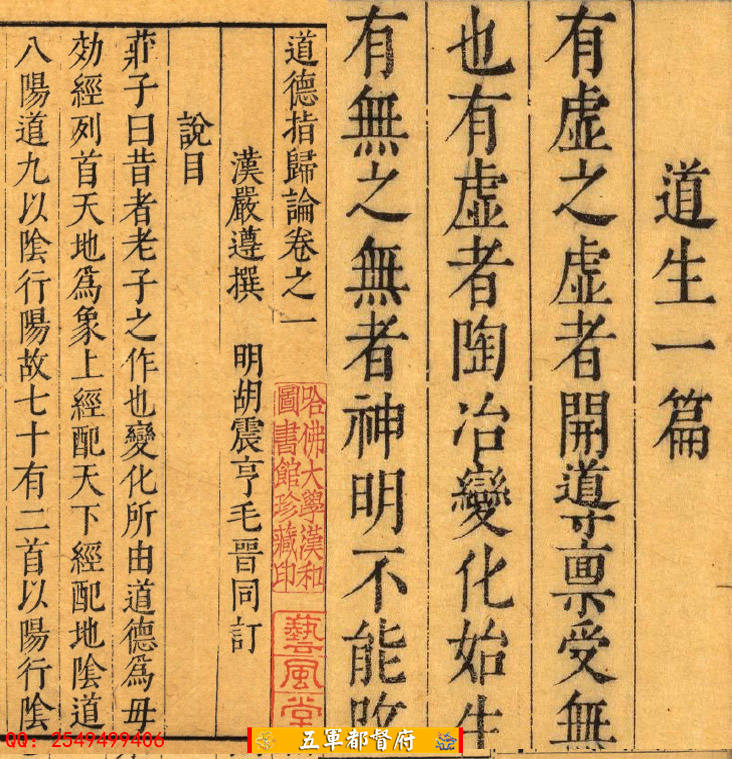 道生一篇
有虛之虛者開導稟受無
也有虛者陶冶變化始生
有無之無者神明不能
道德指歸論卷之一
漢嚴遵撰 明胡震亨毛晉同訂
說目
莊子曰昔者老子之作也變化所由道德爲母
効經列首天地爲象上經配天下經配地陰道
八陽道九以陰行陽故七十有二首以陽行陰
哈佛大學漢和
圖書館珍藏印
藝風堂
QQ: 2549499406
五軍都督府